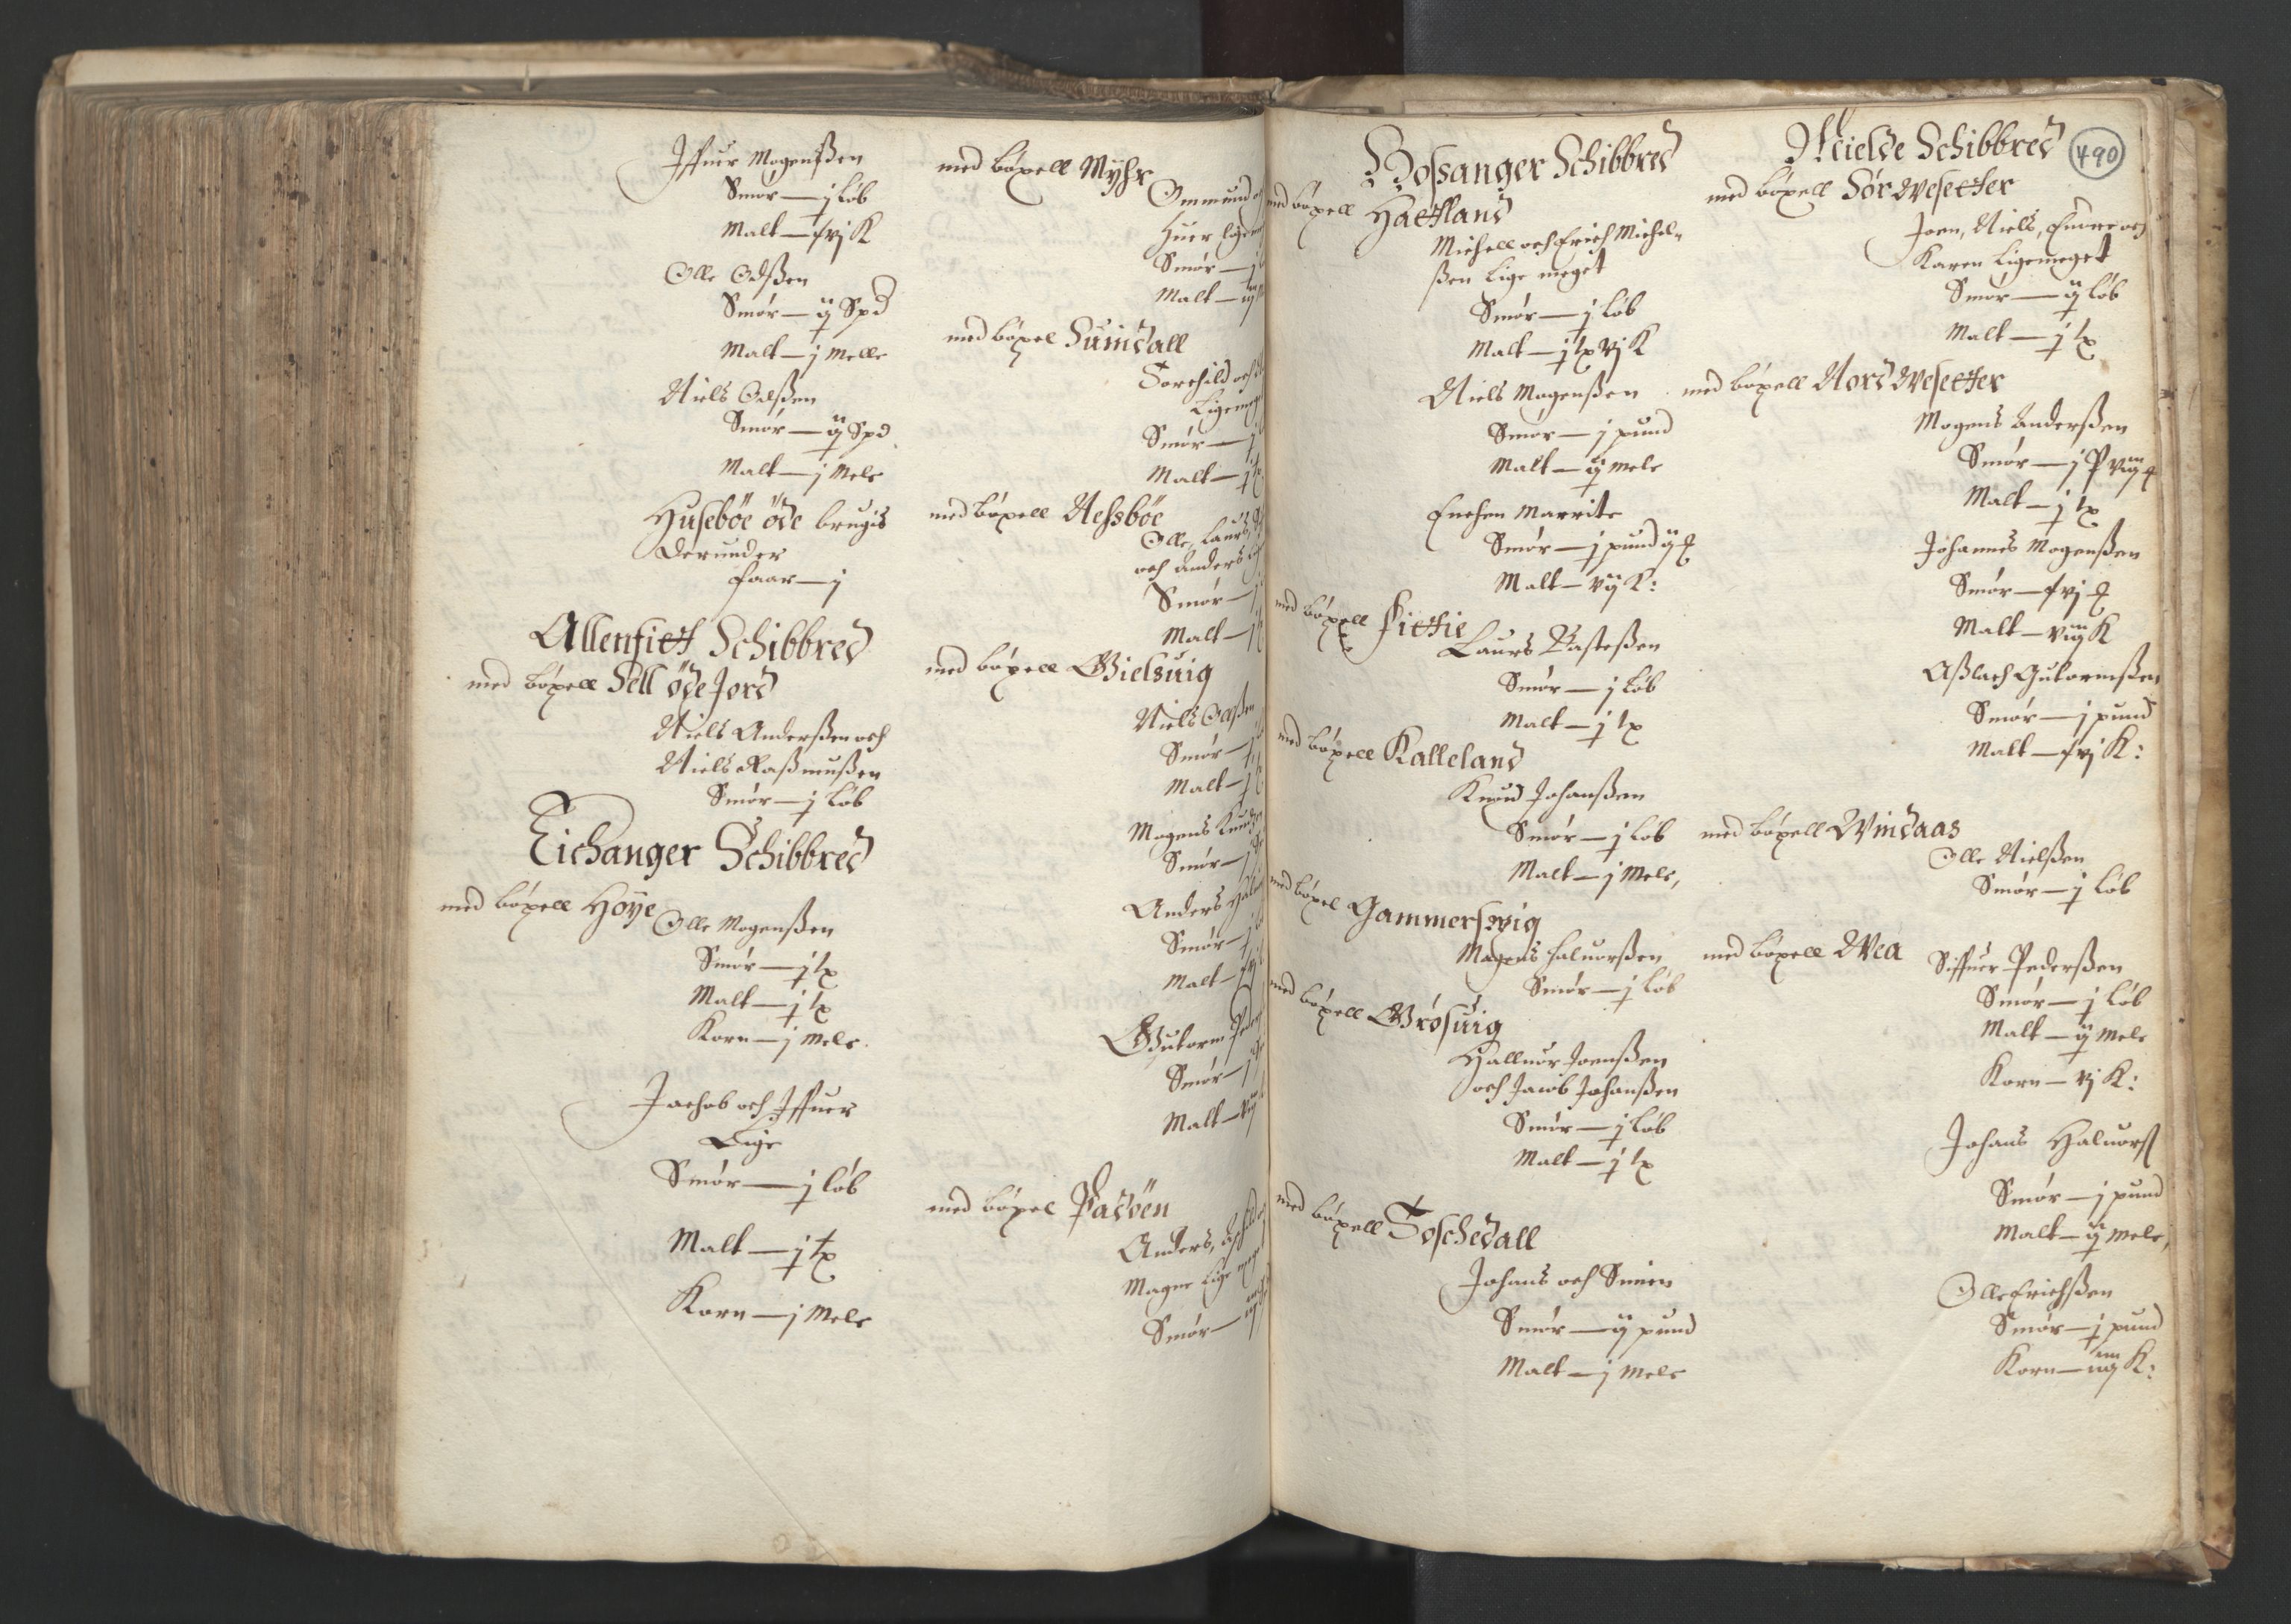 Iffuer Mogenßen
Smör — j Löb
Malt — fvj K
Olle Odßen
Smör — ij Spd
Malt — j Melle
Niels Olßen
Smör — ij Spd
Malt — j Mele
Huseböe öde brugis
Derunder
faar — j
Allenfiet Schibbred
med böxell Sell öde Jord
Niels Anderßen och
Niels Raßmußen
Smör — j Löb
Eichanger Schibbred
med böxell Höye
Olle Mogenßen
Smör — j tx
Malt — j tx
Korn — j Mele.
Jachob och Iffuer
Lige
Smör — j löb
Malt — j tx
Korn — j Mele
med böxell Myhr
Ommund
Huer
Smör — j
Malt —
med böxel Suindall
Torchild och
Ligemeget
Smör — j
Malt — j tx
med böxell Nessböe
Olle, Laurs,
och Anders
Smör — j
Malt — j
med böxell Gielsuig
Niels Olßen
Smör — j
Malt — j
Mogens
Smör — j
Anders
Smör — j
Malt —
Gutorm
Smör — j
Malt —
med böxel Padöen
Anders,
Magne Lige
Smör —
Hossanger Schibbred
med böxell Haetland
Michell och Erich Michel-
ßen Lige meget
Smör — j Löb
Malt — j tx vj K
Niels Mogenßen
Smör — j pund
Malt — ij mele
Enchen Marrite
Smör — j pund ij
Malt — vij K:
med böxell Fiettie
Laurs Tasteßen
Smör — j Löb
Malt — j tx
med böxell Kalleland
Knud Johanßen
Smör — j Löb
Malt — j Mele,
med böxel Gammerswig
Mogens Haluorßen
Smör — j Löb
med böxell Grösuig
Halluor Joenßen
och Jacob Johanßen
Smör — j Löb
Malt — j tx
med böxell Toschedall
Johans och Simen
Smör — ij pund
Malt — j Mele
Mielde Schibbred
490
med böxell Sör Wesetter
Joen, Niels, Endre och
Karen Ligemeget
Smör — ij Löb
Malt — j tx
med böxell Nord Wesetter
Mogens Anderßen
Smör — j P viij
Malt — j tx
Johannes Mogenßen
Smör — fvj
Malt — viij K
Aßlach Gutormßen
Smör — j pund
Malt — fvj K:
med böxell Windaas
Olle Nielßen
Smör — j Löb
med böxell Wea
Siffuer Pederßen
Smör — j Löb
Malt — ij Mele
Korn — vj K:
Johans Haluorß
Smör — j pund
Malt — ij Mele,
Olle Erichßen
Smör — j pund
Korn — iiij K: